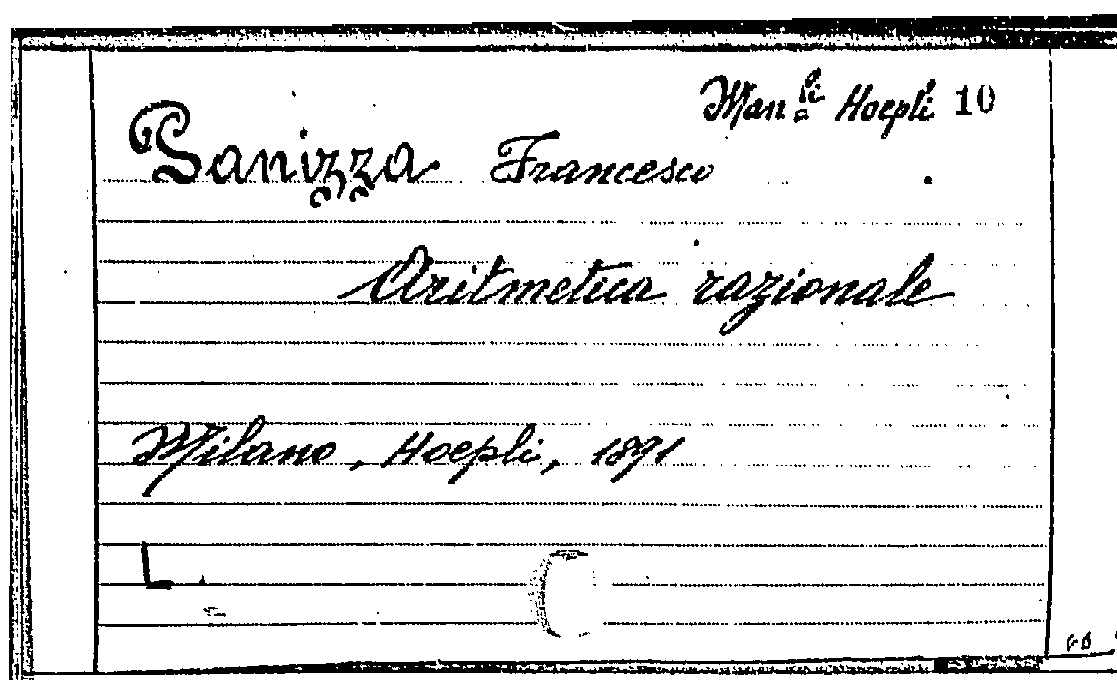 Man.li Hoepli 10
Panizza Francesco
Aritmetica razionale
Milano, Hoepli, 1891
L